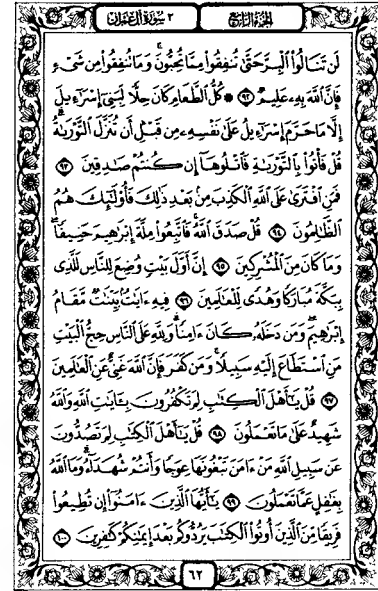 الجزء الرابع
٣ سورة آل عمران
لَن تَنَالُوا۟ ٱلْبِرَّ حَتَّىٰ تُنفِقُوا۟ مِمَّا تُحِبُّونَ ۚ وَمَا تُنفِقُوا۟ مِن شَىْءٍ
فَإِنَّ ٱللَّهَ بِهِۦ عَلِيمٌ ۝٩٢ ۞ كُلُّ ٱلطَّعَامِ كَانَ حِلًّا لِّبَنِىٓ إِسْرَٰٓءِيلَ
إِلَّا مَا حَرَّمَ إِسْرَٰٓءِيلُ عَلَىٰ نَفْسِهِۦ مِن قَبْلِ أَن تُنَزَّلَ ٱلتَّوْرَىٰةُ ۗ
قُلْ فَأْتُوا۟ بِٱلتَّوْرَىٰةِ فَٱتْلُوهَآ إِن كُنتُمْ صَٰدِقِينَ ۝٩٣
فَمَنِ ٱفْتَرَىٰ عَلَى ٱللَّهِ ٱلْكَذِبَ مِنۢ بَعْدِ ذَٰلِكَ فَأُو۟لَٰٓئِكَ هُمُ
ٱلظَّٰلِمُونَ ۝٩٤ قُلْ صَدَقَ ٱللَّهُ ۗ فَٱتَّبِعُوا۟ مِلَّةَ إِبْرَٰهِيمَ حَنِيفًا ۖ
وَمَا كَانَ مِنَ ٱلْمُشْرِكِينَ ۝٩٥ إِنَّ أَوَّلَ بَيْتٍ وُضِعَ لِلنَّاسِ لَلَّذِى
بِبَكَّةَ مُبَارَكًا وَهُدًى لِّلْعَٰلَمِينَ ۝٩٦ فِيهِ ءَايَٰتٌۢ بَيِّنَٰتٌ مَّقَامُ
إِبْرَٰهِيمَ ۖ وَمَن دَخَلَهُۥ كَانَ ءَامِنًا ۗ وَلِلَّهِ عَلَى ٱلنَّاسِ حِجُّ ٱلْبَيْتِ
مَنِ ٱسْتَطَاعَ إِلَيْهِ سَبِيلًا ۚ وَمَن كَفَرَ فَإِنَّ ٱللَّهَ غَنِىٌّ عَنِ ٱلْعَٰلَمِينَ
۝٩٧ قُلْ يَٰٓأَهْلَ ٱلْكِتَٰبِ لِمَ تَكْفُرُونَ بِـَٔايَٰتِ ٱللَّهِ وَٱللَّهُ
شَهِيدٌ عَلَىٰ مَا تَعْمَلُونَ ۝٩٨ قُلْ يَٰٓأَهْلَ ٱلْكِتَٰبِ لِمَ تَصُدُّونَ
عَن سَبِيلِ ٱللَّهِ مَنْ ءَامَنَ تَبْغُونَهَا عِوَجًا وَأَنتُمْ شُهَدَآءُ ۗ وَمَا ٱللَّهُ
بِغَٰفِلٍ عَمَّا تَعْمَلُونَ ۝٩٩ يَٰٓأَيُّهَا ٱلَّذِينَ ءَامَنُوٓا۟ إِن تُطِيعُوا۟
فَرِيقًا مِّنَ ٱلَّذِينَ أُوتُوا۟ ٱلْكِتَٰبَ يَرُدُّوكُم بَعْدَ إِيمَٰنِكُمْ كَٰفِرِينَ ۝١٠٠
٦٢